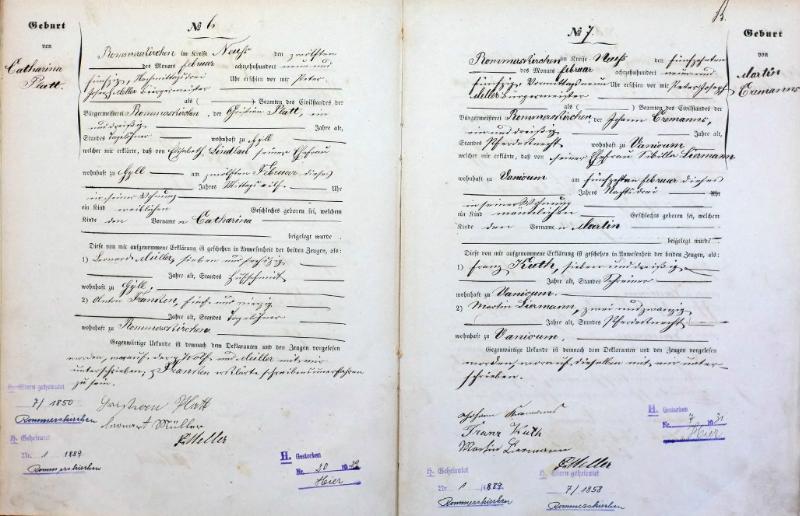 Geburt
von
Catharina
Platt
№ 6
Rommerskirchen im Kreise Neuß den zwölften
des Monats Februar achtzehnhundert neun und
fünfzig Nachmittags drei Uhr erschien vor mir Peter
Joseph Miller Bürgermeister
als ( ) Beamten des Civilstandes der
Bürgermeisterei Rommerskirchen, der Christian Platt, ein
und dreißig Jahre alt,
Standes Tagelöhner wohnhaft zu Gyll
welcher mir erklärte, daß von Elisabeth Lindlau seiner Ehefrau
wohnhaft zu Gyll am zwölften Februar dieses
Jahres Mittags Uhr
in seiner Wohnung
ein Kind weiblichen Geschlechts geboren sei, welchem
Kinde den Vorname n Catharina
beigelegt wurde.
Diese von mir aufgenommene Erklärung ist geschehen in Anwesenheit der beiden Zeugen, als:
1) Leonard Müller, sieben und
Jahre alt, Standes Hufschmidt
wohnhaft zu Gyll,
2) Anton Franken, fünf und vierzig
Jahre alt, Standes Tagelöhner
wohnhaft zu Rommerskirchen
Gegenwärtige Urkunde ist demnach dem Deklaranten und den Zeugen vorgelesen
worden, und Müller mit mir
unterschrieben, Franken erklärte schreibensunerfahren
zu sein.
Platt
Müller
PMiller
Eltern geheiratet
7 / 1850
Rommerskirchen
H. Geheiratet
Nr. 1 1889
Rommerskirchen
H. Gestorben
Nr. 20
Hier
B.
Geburt
von
Martin
Eremanns
№ 7
Rommerskirchen im Kreise Neuß den fünfzehnten
des Monats Februar achtzehnhundert neun und
fünfzig Vormittags neun Uhr erschien vor mir Peter Joseph
Miller Bürgermeister
als ( ) Beamten des Civilstandes der
Bürgermeisterei Rommerskirchen der Johann Eremanns,
ein und dreißig Jahre alt,
Standes Pferdeknecht wohnhaft zu Vanicum
welcher mir erklärte, daß von seiner Ehefrau Sibilla Liermann
wohnhaft zu Vanicum am fünfzehnten Februar dieses
Jahres Nachts drei Uhr
in seiner Wohnung
ein Kind männlichen Geschlechts geboren sei, welchem
Kinde den Vorname n Martin
beigelegt wurde.
Diese von mir aufgenommene Erklärung ist geschehen in Anwesenheit der beiden Zeugen, als:
1) Franz Kuth, sieben und dreißig
Jahre alt, Standes Schreiner
wohnhaft zu Vanicum.
2) Martin Liermann, zwei und zwanzig
Jahre alt, Standes Pferdeknecht
wohnhaft zu Vanicum.
Gegenwärtige Urkunde ist demnach dem Deklaranten und den Zeugen vorgelesen
worden, worauf dieselben mit mir unter-
schrieben.
Johann Eremanns
Franz Kuth
Martin Liermann
PMiller
H. Gestorben
Nr. 7 1931
Hier
H. Geheiratet
Nr. 1 1889
Rommerskirchen
Eltern geheiratet
7 / 1858
Rommerskirchen